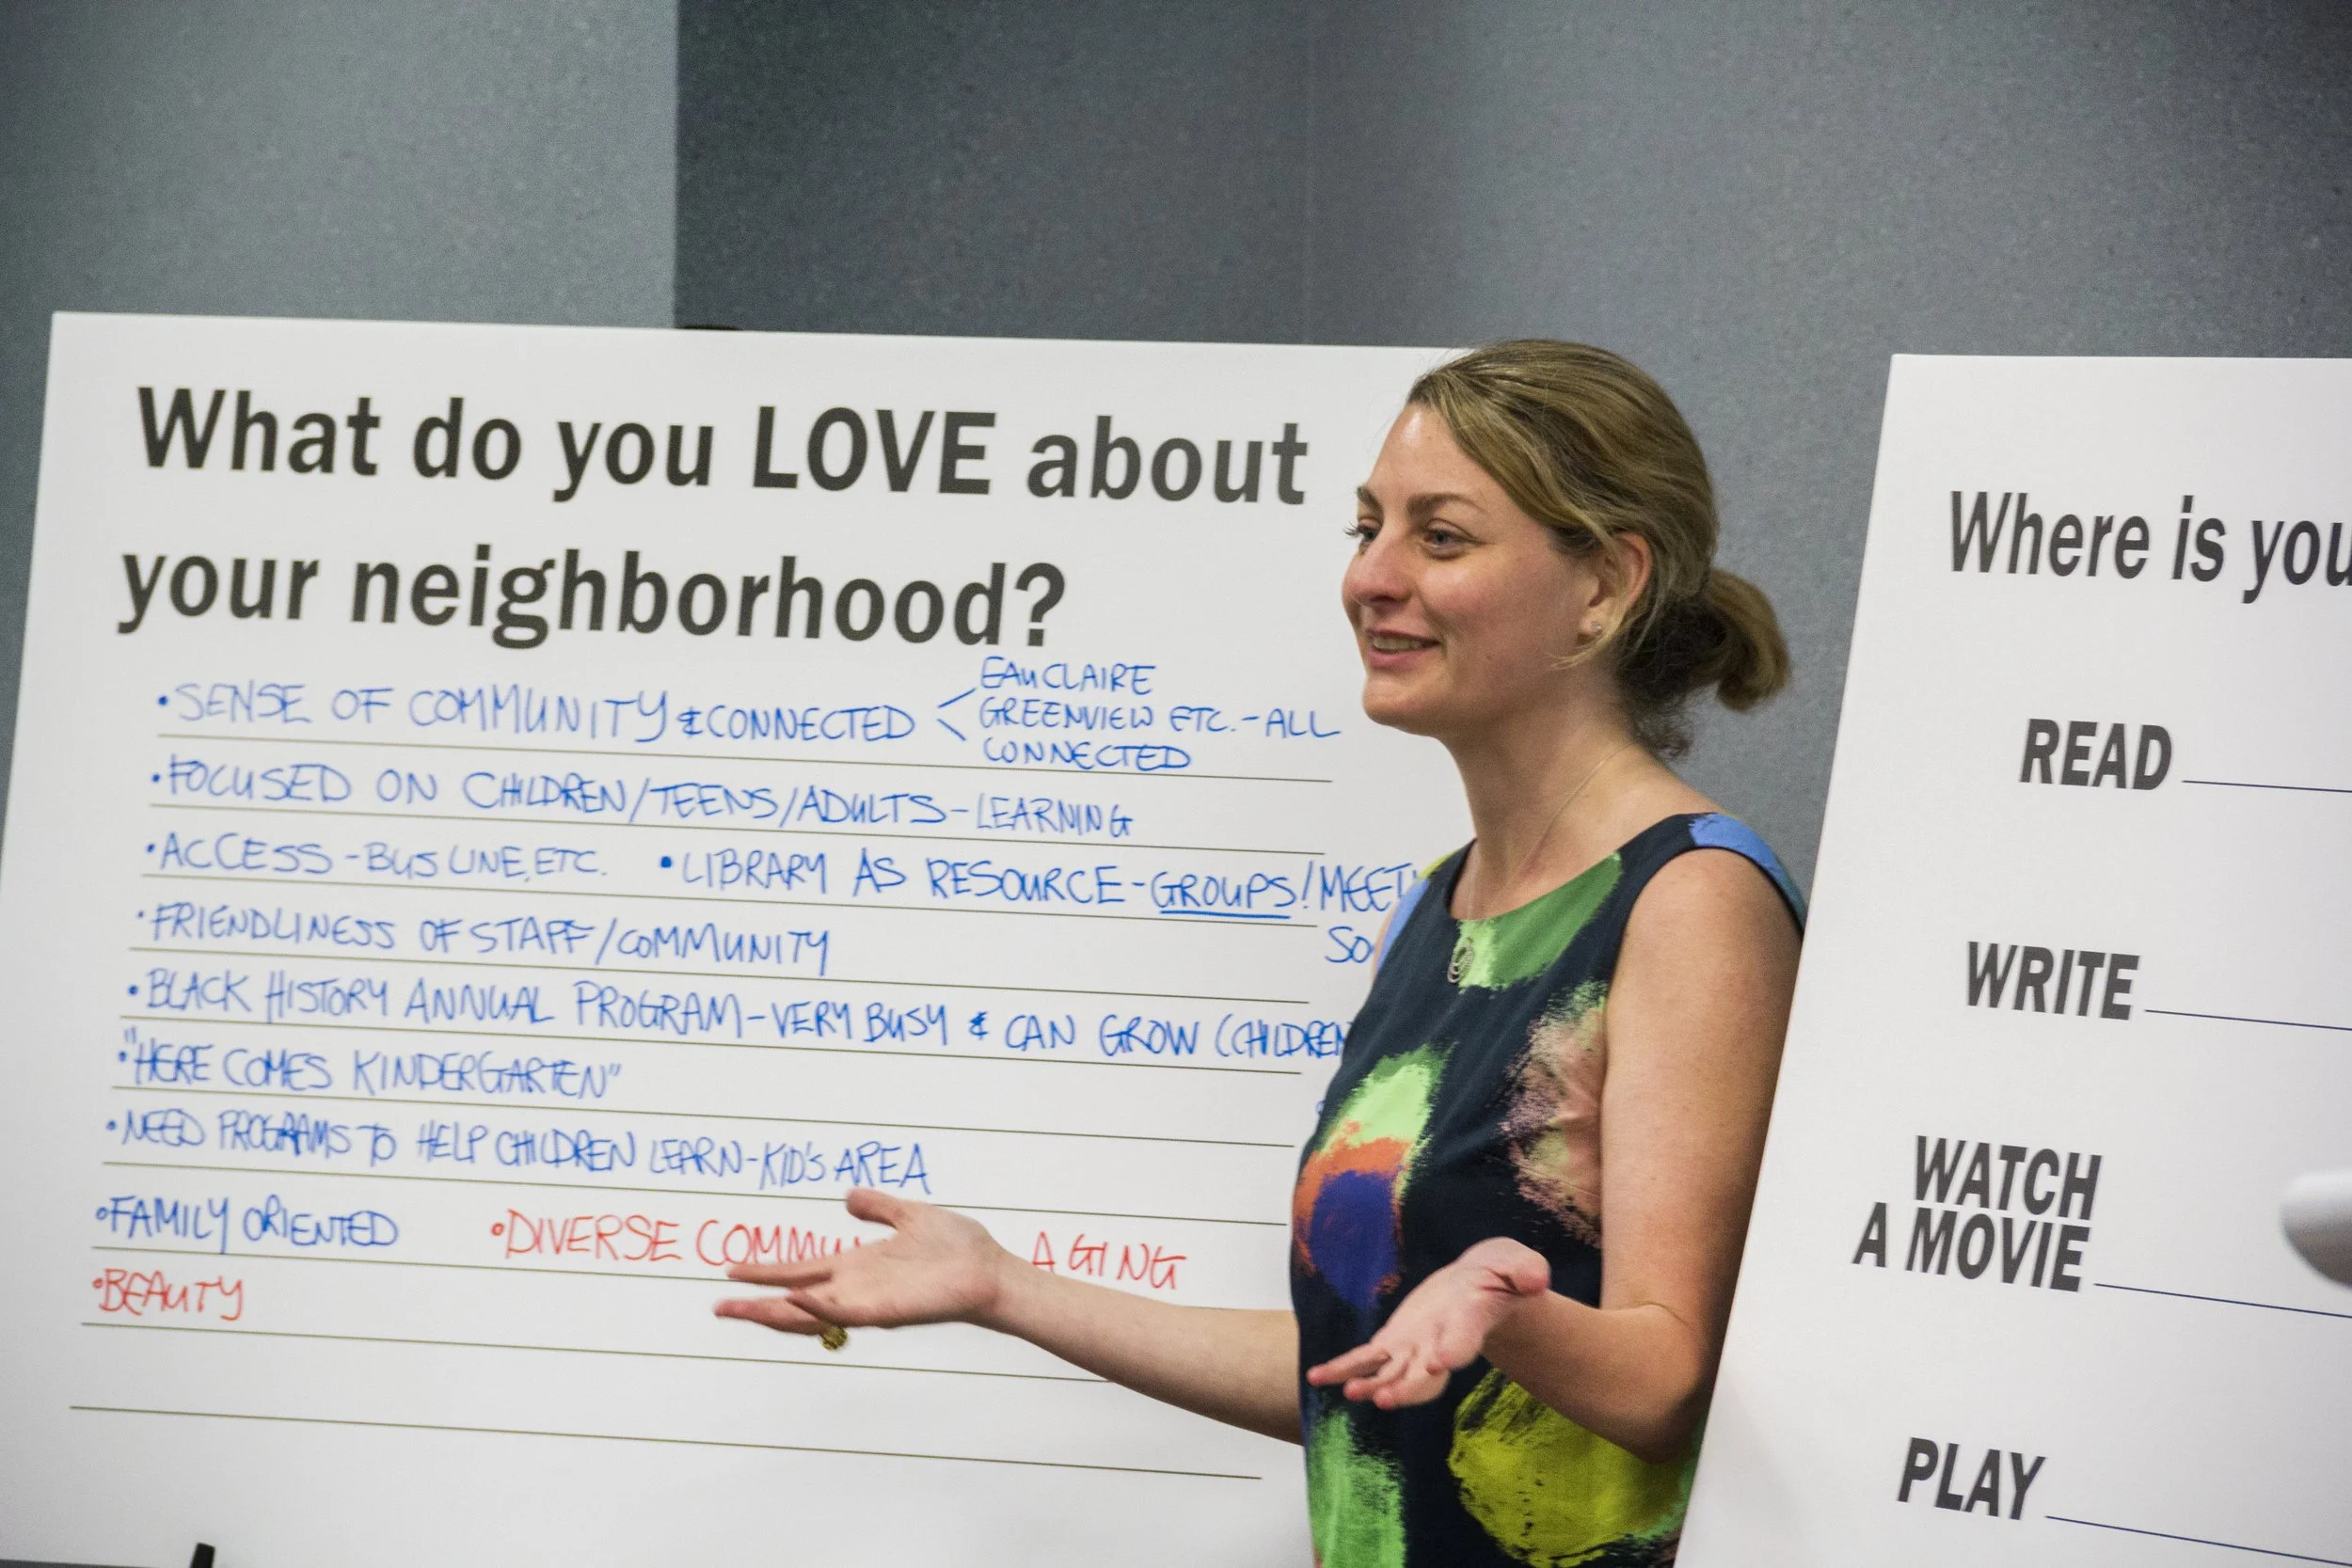 What do you LOVE about
your neighborhood?
• SENSE OF COMMUNITY & CONNECTED < EAU CLAIRE
GREENVIEW ETC. - ALL
CONNECTED
• FOCUSED ON CHILDREN/TEENS/ADULTS - LEARNING
• ACCESS - BUS LINE, ETC. • LIBRARY AS RESOURCE - GROUPS! MEET
SO
• FRIENDLINESS OF STAFF/COMMUNITY
• BLACK HISTORY ANNUAL PROGRAM - VERY BUSY & CAN GROW (CHILDREN
• "HERE COMES KINDERGARTEN"
• NEED PROGRAMS TO HELP CHILDREN LEARN - KID'S AREA
• FAMILY ORIENTED • DIVERSE COMMU AGING
• BEAUTY
Where is you
READ
WRITE
WATCH
A MOVIE
PLAY